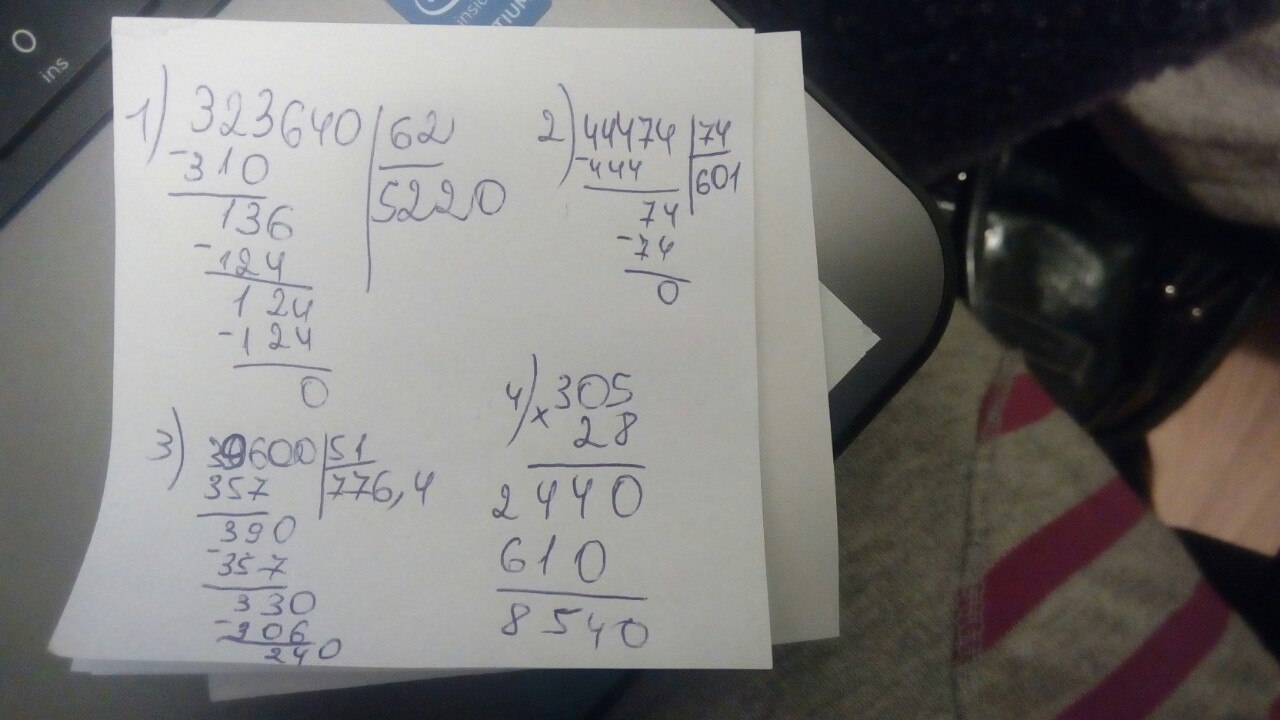 ins
insid
TIUM
1) 323640 | 62
-310 5220
136
-124
124
-124
0
2) 44474 | 74
-444 601
74
-74
0
3) 39600 | 51
357 776,4
390
-357
330
-306
240
4) × 305
28
2440
610
8540